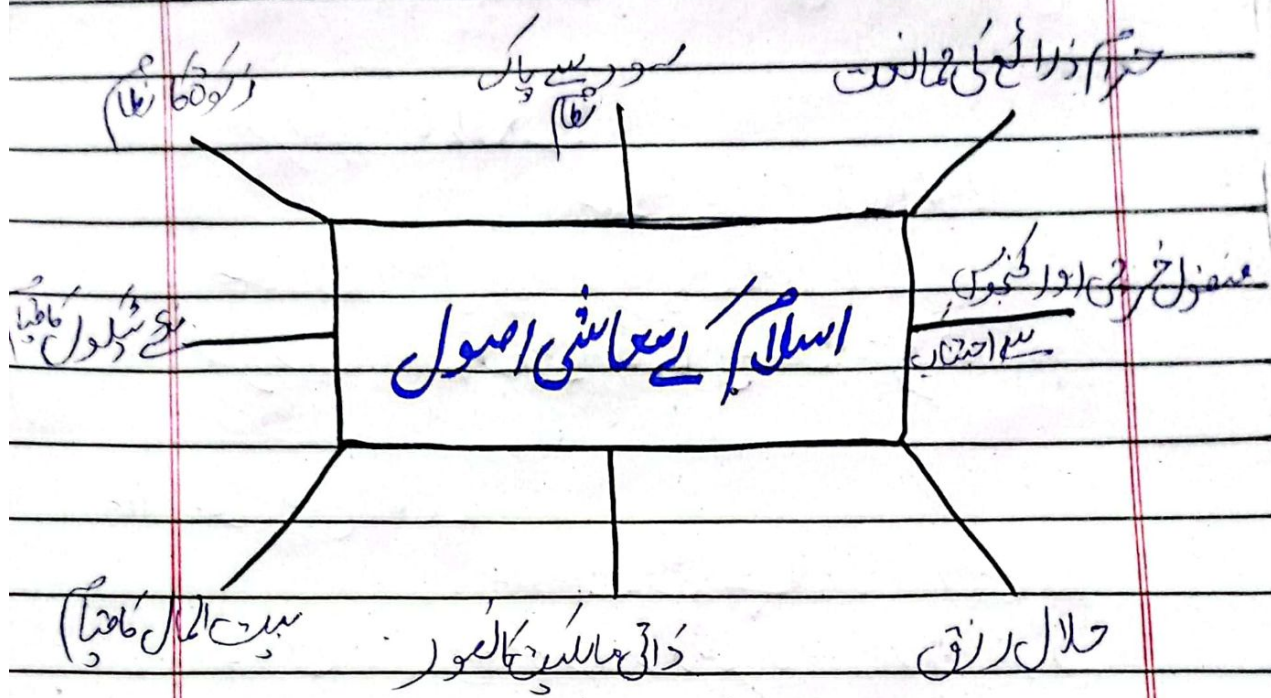 حرام ذرائع کی ممانعت
سود سے پاک
نظام
زکوٰۃ کا نظام
فضول خرچی اور کنجوسی
سے اجتناب
اسلام کے معاشی اصول
کا قیام
حلال رزق
ذاتی ملکیت کا تصور
بیت المال کا قیام